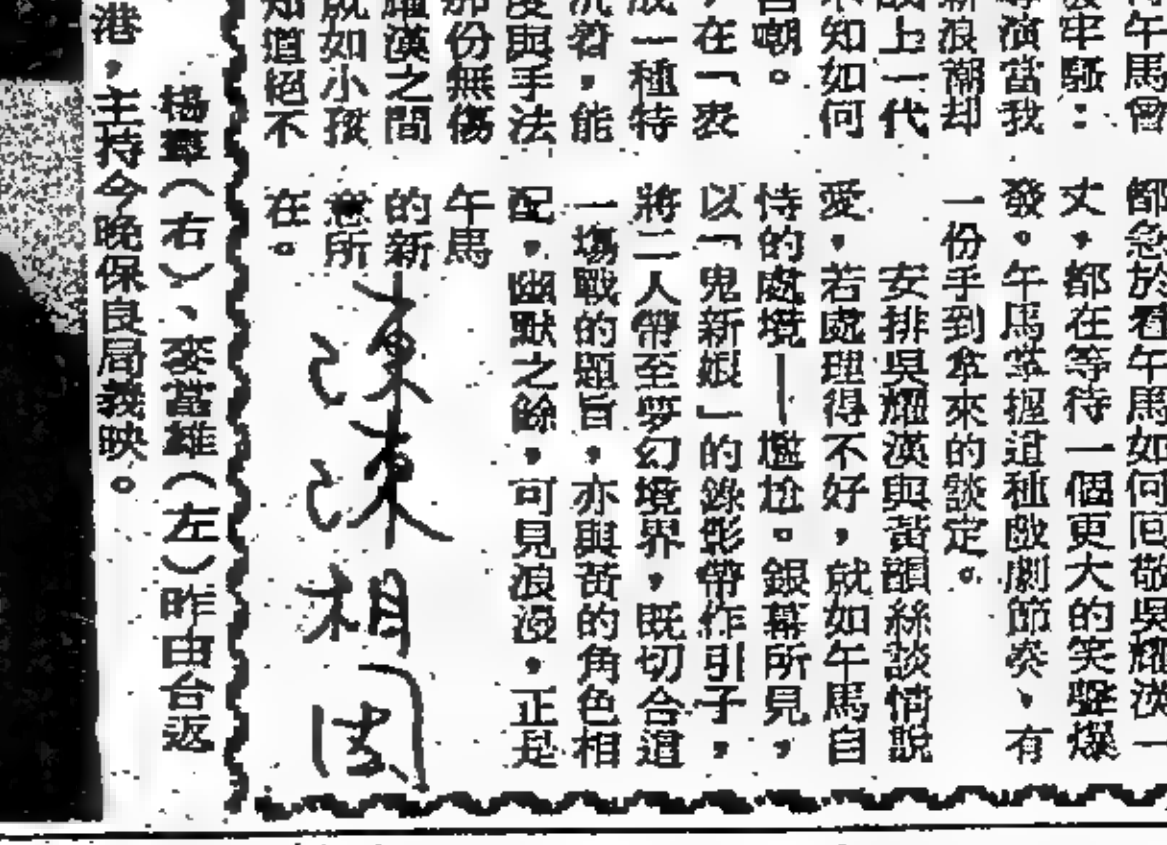 午馬曾
發牢騷：
導演當我
新浪潮却
上一代
不知如何
嘲。
，在「表
成一種特
沉着，能
度與手法
那份無傷
耀漢之間
就如小孩
知道絕不
都急於看午馬如何回敬吳耀漢一
丈，都在等待一個更大的笑聲爆
發。午馬掌握這種戲劇節奏、有
一份手到拿來的談定。
安排吳耀漢與黃韻絲談情說
愛，若處理得不好，就如午馬自
恃的處境——尷尬。銀幕所見，
以「鬼新娘」的錄影帶作引子，
將二人帶至夢幻境界，既切合這
一場戰的題旨，亦與黃的角色相
配，幽默之餘，可見浪漫，正是
午馬
的新
意所
在。
凍凍
相
楊羣（右）、麥當雄（左）昨由台返
港，主持今晚保良局義映。